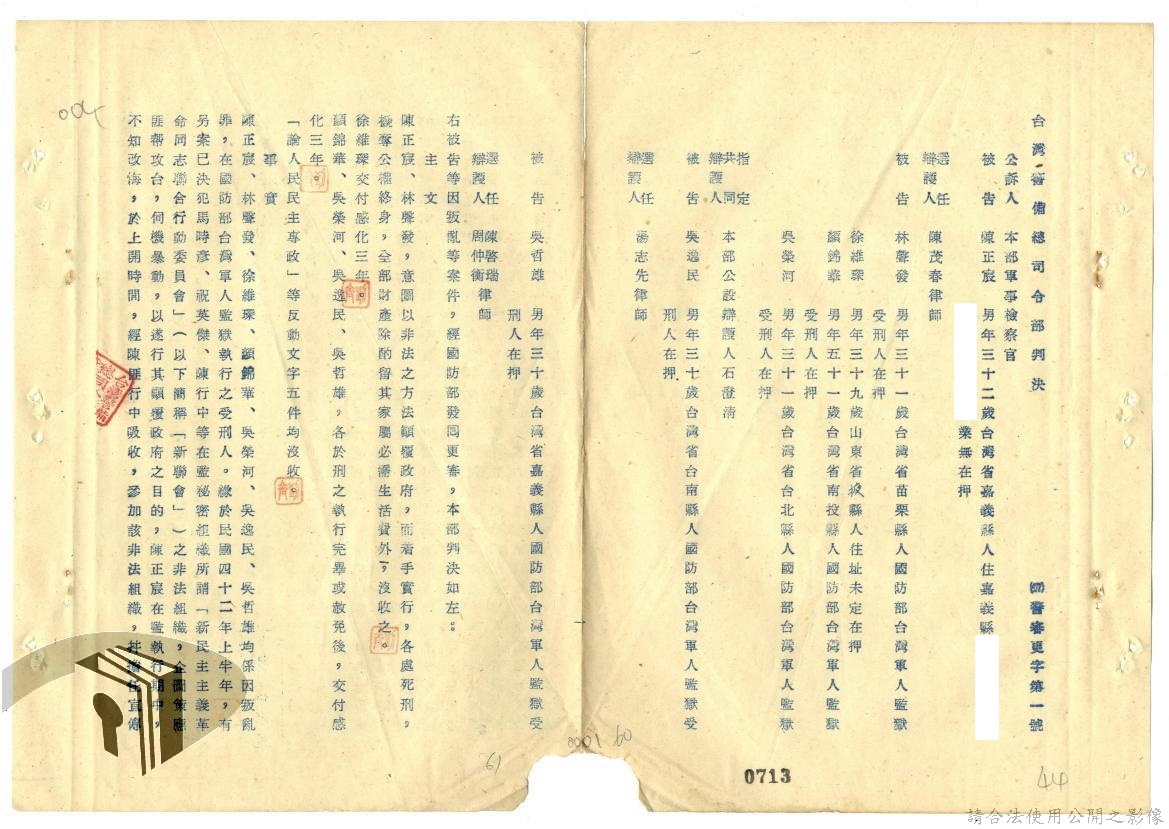 台灣警備總司令部判決
㈣警審更字第一號
公訴人 本部軍事檢察官
被告 陳正宸 男年三十二歲台灣省嘉義縣人住嘉義縣
業無在押
選任辯護人 陳茂春律師
被告 林聲發 男年三十一歲台灣省苗栗縣人國防部台灣軍人監獄
受刑人在押
徐維琛 男年三十九歲山東省掖縣人住址未定在押
受刑人在押
顏錦華 男年五十一歲台灣省南投縣人國防部台灣軍人監獄
吳榮河 男年三十一歲台灣省台北縣人國防部台灣軍人監獄
受刑人在押
指定共同辯護人 本部公設辯護人石澄清
被告 吳逸民 男年三十歲台灣省台南縣人國防部台灣軍人監獄受
刑人在押
選任辯護人 湯志先律師
被告 吳哲雄 男年三十歲台灣省嘉義縣人國防部台灣軍人監獄受
刑人在押
選任辯護人 陳啓瑞 周仲衡 律師
右被告等因叛亂等案件,經國防部發回更審,本部判決如左。
主文
陳正宸、林聲發,意圖以非法之方法顛覆政府,而着手實行,各處死刑,
褫奪公權終身,全部財產除酌留其家屬必需生活費外,沒收之。
徐維琛交付感化三年。
顏錦華、吳榮河、吳逸民、吳哲雄,各於刑之執行完畢或赦免後,交付感
化三年。
「論人民民主專政」等反動文字五件均沒收。
事實
陳正宸、林聲發、徐維琛、顏錦華、吳榮河、吳逸民、吳哲雄均係因叛亂
罪,在國防部台灣軍人監獄執行之受刑人。緣於民國四十二年上半年,有
另案已決犯馬時彥、祝英傑、陳行中等在監秘密組織所謂「新民主主義革
命同志聯合行動委員會」(以下簡稱「新聯會」)之非法組織,企圖策應
匪幫攻台,伺機暴動,以遂行其顛覆政府之目的,陳正宸在監執行期中,
不知改悔,於上開時間,經陳匪行中吸收,參加該非法組織,並擔任宣傳
一
004
61
0001 60
0713
44
請合法使用公開之影像